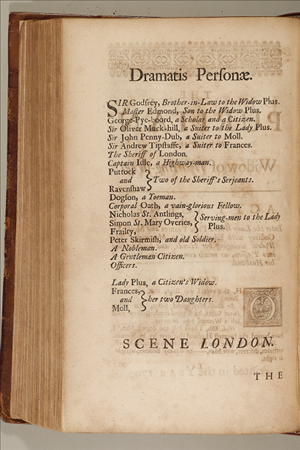 Dramatis Personæ.
SIR Godfrey, Brother-in-Law to the Widow Plus.
Master Edmond, Son to the Widow Plus.
George-Pye-board, a Scholar and a Citizen.
Sir Oliver Muck-hill, a Suiter to the Lady Plus.
Sir John Penny-Dub, a Suiter to Moll.
Sir Andrew Tipstaffe, a Suiter to Frances.
The Sheriff of London.
Captain Idle, a Highway-man.
Puttock
and
Ravenshaw
Two of the Sheriff's Serjeants.
Dogson, a Yeoman.
Corporal Oath, a vain-glorious Fellow.
Nicholas St. Antlings,
Simon St. Mary Overies,
Frailty,
Serving-men to the Lady
Plus.
Peter Skirmish, and old Soldier.
A Nobleman.
A Gentleman Citizen.
Officers.
Lady Plus, a Citizen's Widow.
Frances,
and
Moll,
her two Daughters.
SCENE LONDON.
THE